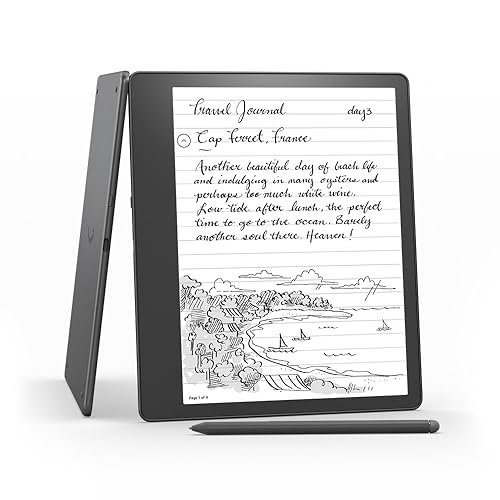 Travel Journal day3
Cap Ferret, France
Another beautiful day of beach life
and indulging in many oysters and
perhaps too much white wine.
Low tide after lunch, the perfect
time to go to the ocean. Barely
another soul there. Heaven!
Page 5 of 6